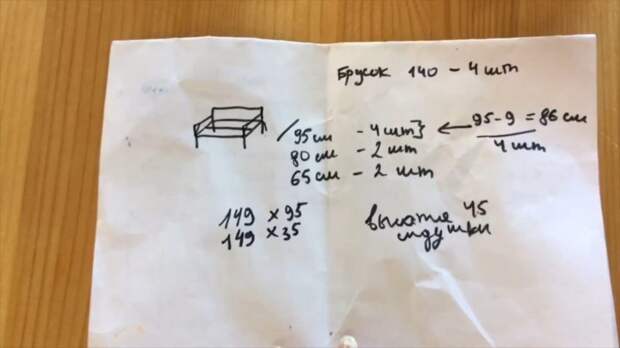 Брусок 140 - 4 шт
95 см - 4 шт} ← 95-9 = 86 см
80 см - 2 шт
4 шт
65 см - 2 шт
149 x 95
149 x 35
высота 45